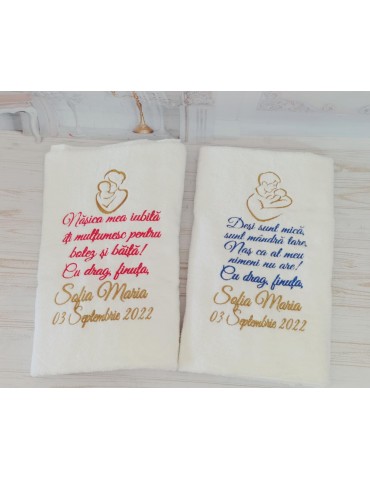 Nășica mea iubită
îți mulțumesc pentru
botez și băiță!
Cu drag, finuța,
Sofia Maria
03 Septembrie 2022
Deși sunt mică,
sunt mândră tare,
Naș ca al meu
nimeni nu are!
Cu drag, finuța,
Sofia Maria
03 Septembrie 2022